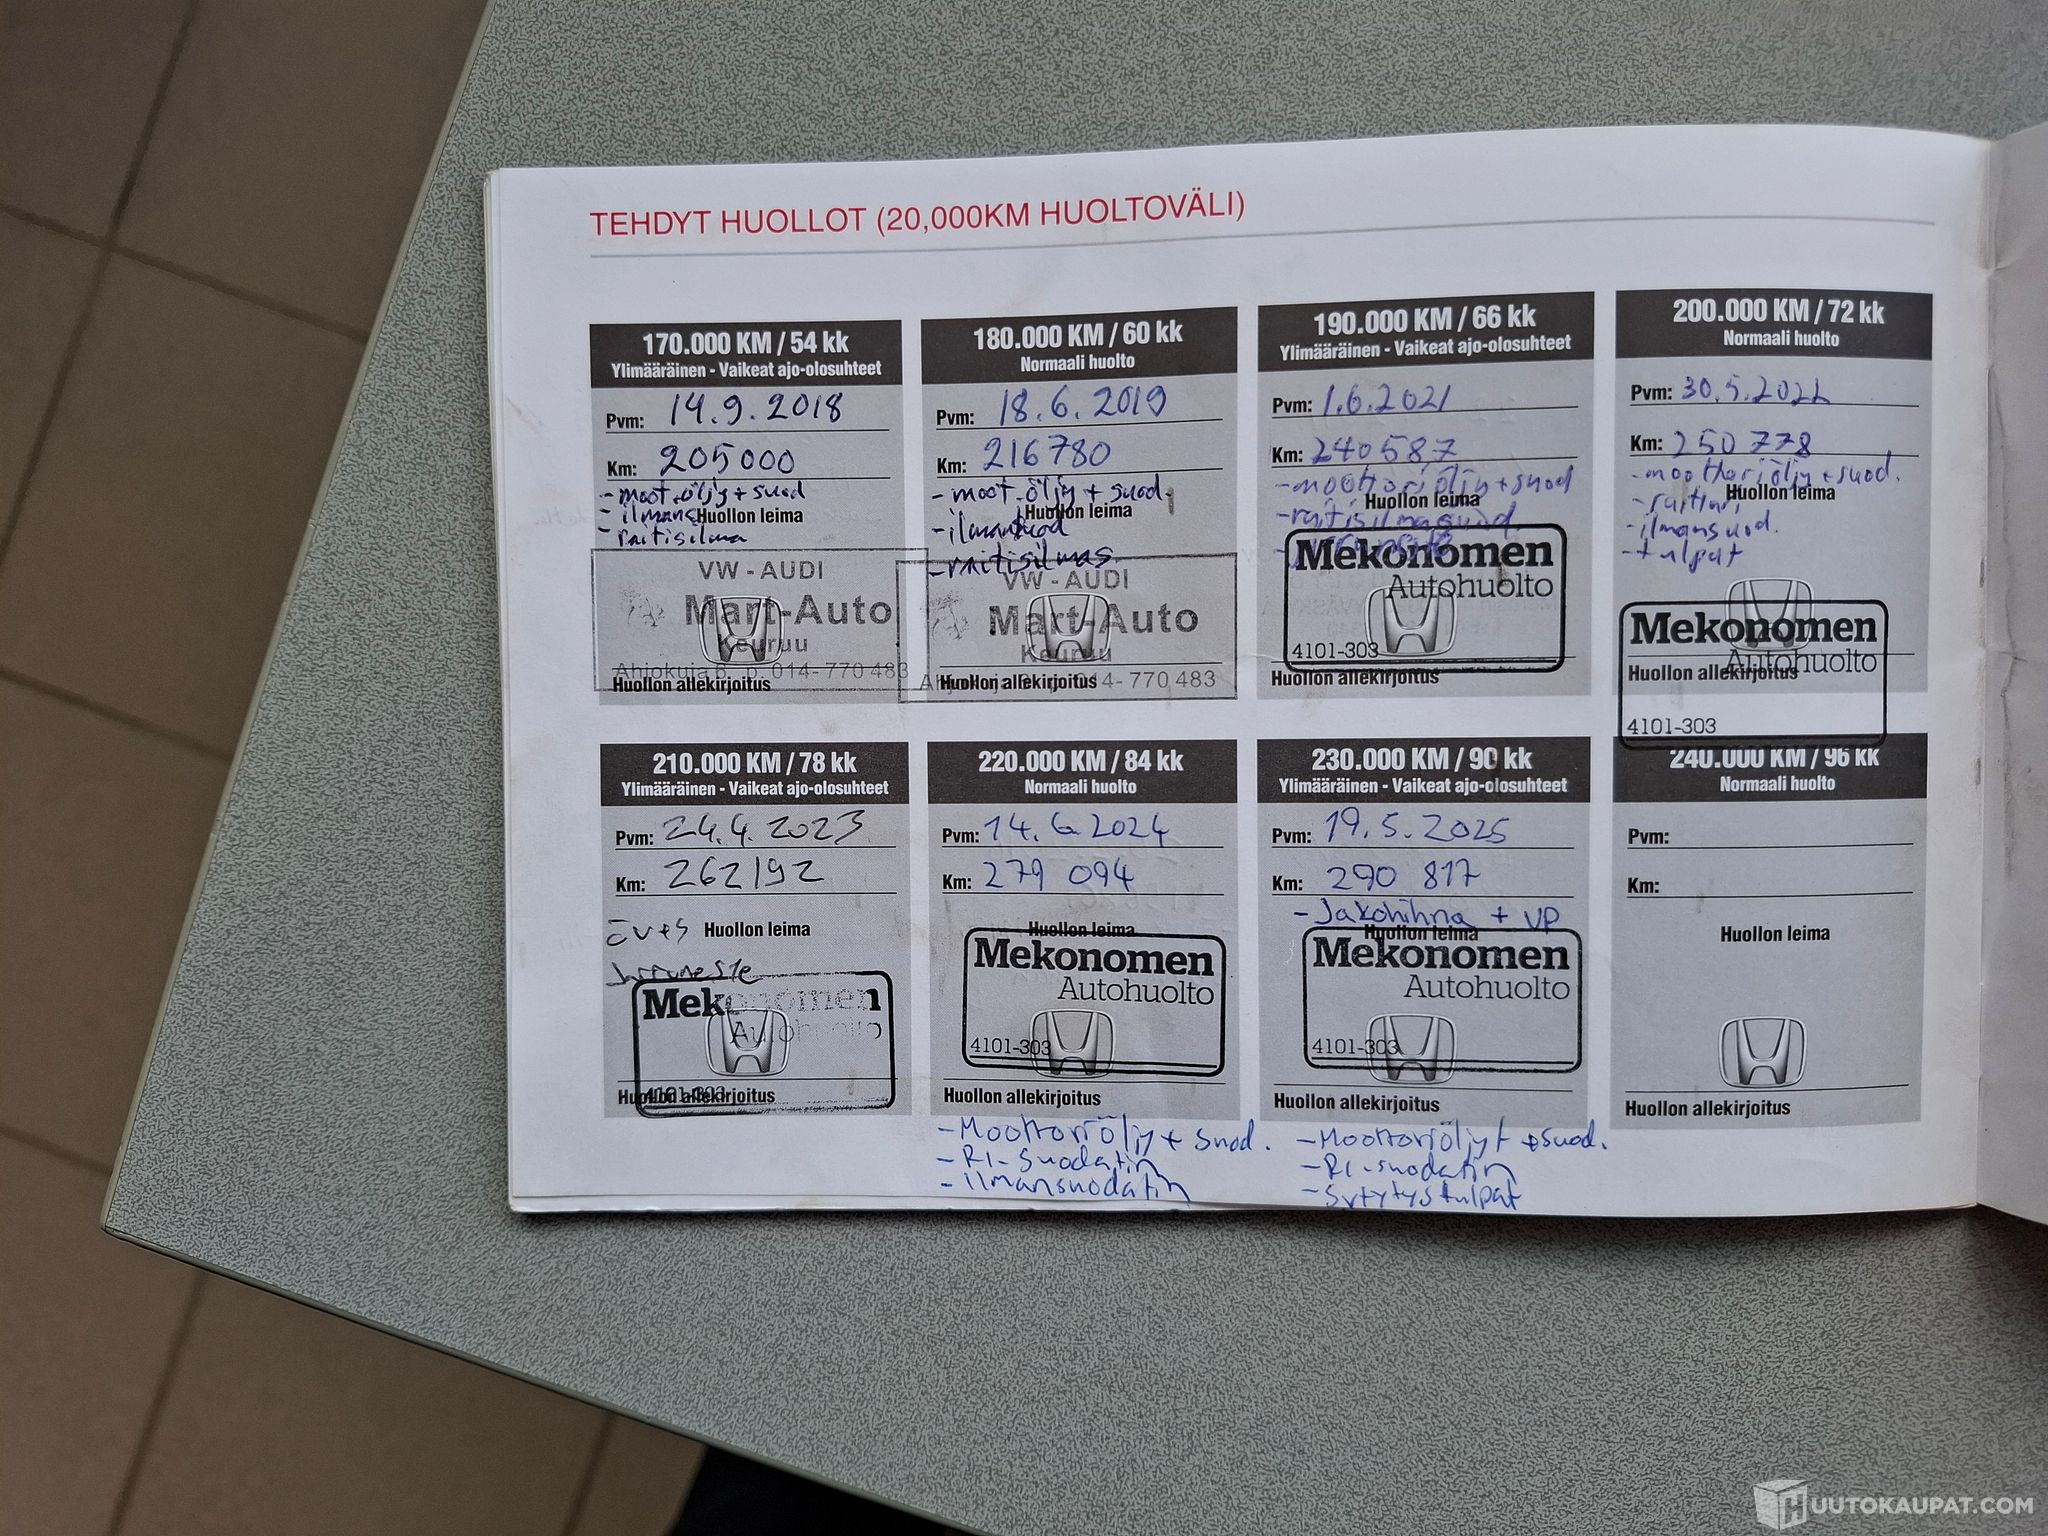 TEHDYT HUOLLOT (20,000KM HUOLTOVÄLI)
170.000 KM / 54 kk
Ylimääräinen - Vaikeat ajo-olosuhteet
Pvm: 14.9.2018
Km: 205000
- moot.öljy + suod
- ilmans
Huollon leima
- raitisilma
VW - AUDI
Mart-Auto
Keuruu
Ahjokuja 6 p. 014- 770 483
Huollon allekirjoitus
180.000 KM / 60 kk
Normaali huolto
Pvm: 18.6.2019
Km: 216780
- moot.öljy + suod.
Huollon leima
- ilmansuod
- raitisilmas.
VW - AUDI
Mart-Auto
Keuruu
014- 770 483
Huollon allekirjoitus
190.000 KM / 66 kk
Ylimääräinen - Vaikeat ajo-olosuhteet
Pvm: 1.6.2021
Km: 240587
- moottoriöljy + suod
Huollon leima
- raitisilmasuod.
Mekonomen
Autohuolto
4101-303
Huollon allekirjoitus
200.000 KM / 72 kk
Normaali huolto
Pvm: 30.5.2022
Km: 250 778
- moottoriöljy + suod.
Huollon leima
- ilmansuod.
- tulpat
Mekonomen
Autohuolto
Huollon allekirjoitus
4101-303
210.000 KM / 78 kk
Ylimääräinen - Vaikeat ajo-olosuhteet
Pvm: 24.4.2023
Km: 262192
Huollon leima
Mekonomen
Autohuolto
4101-303
Huollon allekirjoitus
220.000 KM / 84 kk
Normaali huolto
Pvm: 14.6.2024
Km: 279 094
Huollon leima
Mekonomen
Autohuolto
4101-303
Huollon allekirjoitus
- Moottoriöljy + suod.
- RI-suodatin
- ilmansuodatin
230.000 KM / 90 kk
Ylimääräinen - Vaikeat ajo-olosuhteet
Pvm: 19.5.2025
Km: 290 817
- Jakohihna + VP
Huollon leima
Mekonomen
Autohuolto
4101-303
Huollon allekirjoitus
- Moottoriöljy + suod.
- RI-suodatin
- Sytytystulpat
240.000 KM / 96 kk
Normaali huolto
Pvm:
Km:
Huollon leima
Huollon allekirjoitus
HUUTOKAUPAT.COM